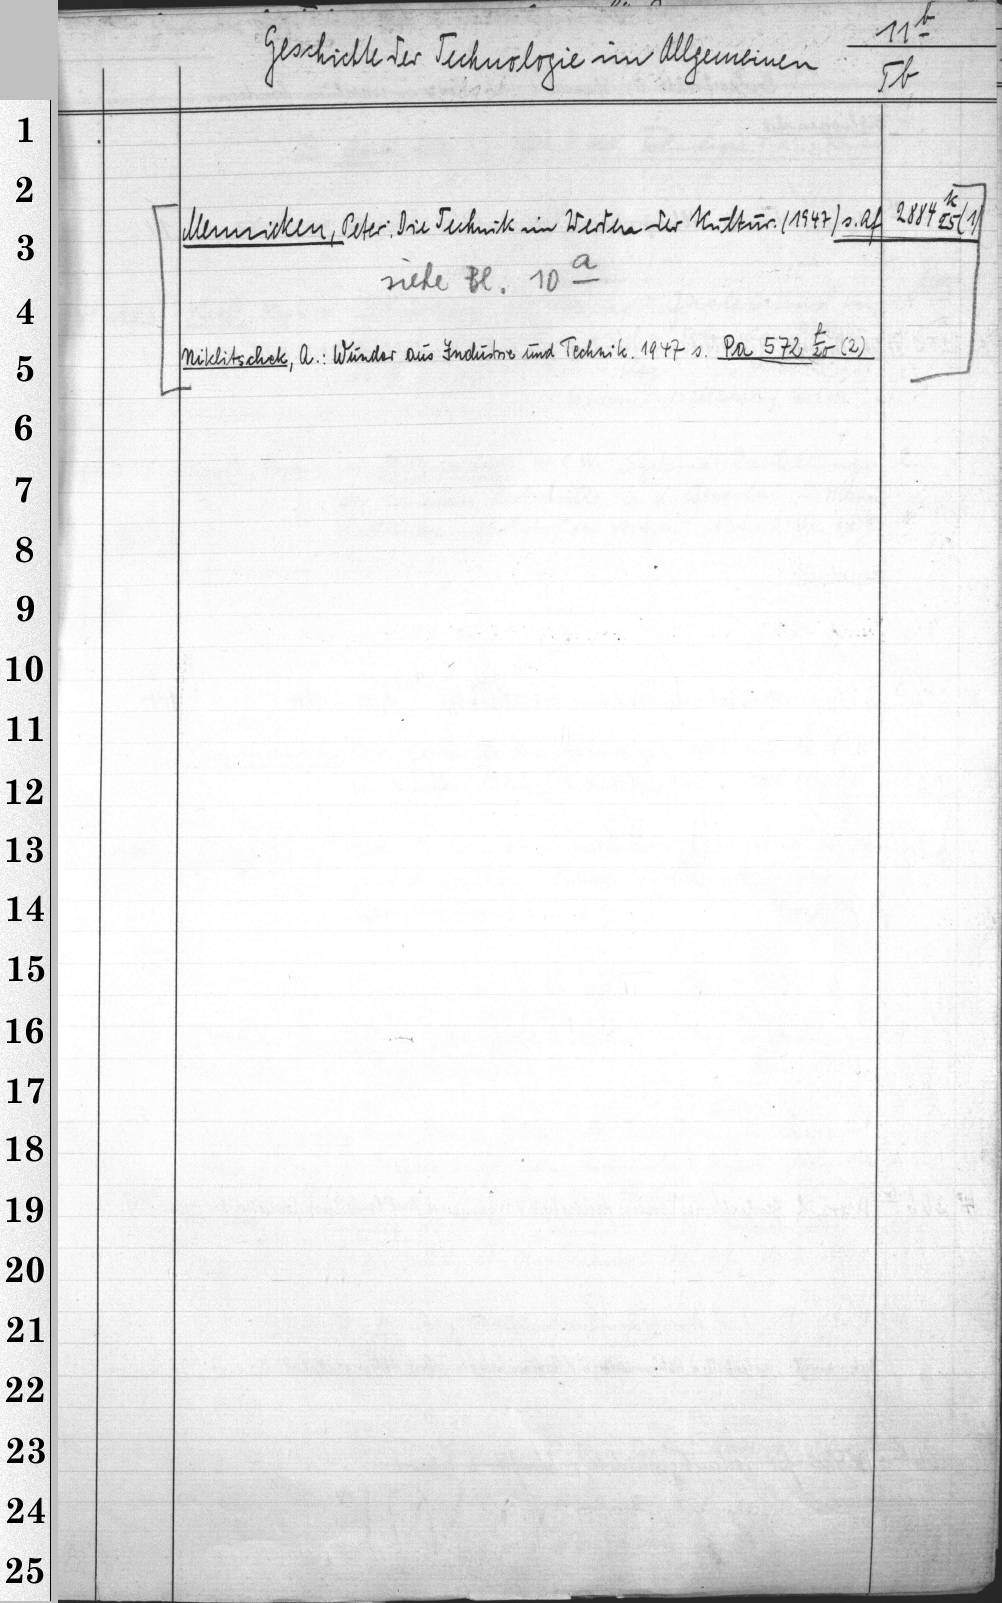 Geschichte der Technologie im Allgemeinen 11b
Tb
1
2
Mennicken, Peter: Die Technik im Werden der Kultur. (1947) s. Af 2884 k/25 (1)
3
siehe Bl. 10 a
4
Niklitschek, A.: Wunder aus Industrie und Technik. 1947 s. Pa 572 f/20 (2)
5
6
7
8
9
10
11
12
13
14
15
16
17
18
19
20
21
22
23
24
25